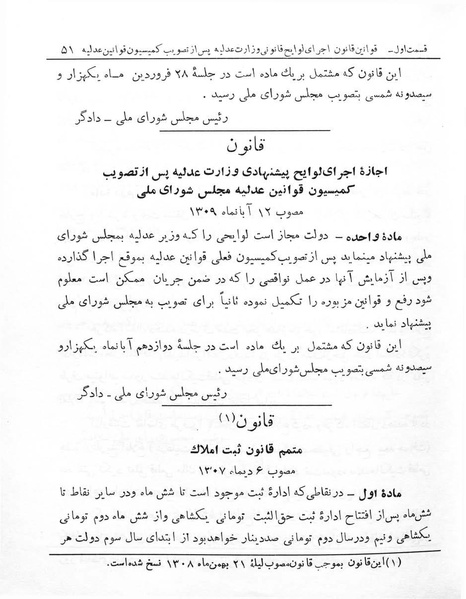 قسمت اول ــ قوانین قانون اجرای لوایح قانونی وزارت عدلیه پس از تصویب کمیسیون قوانین عدلیه ۵۱
این قانون که مشتمل بریك ماده است در جلسهٔ ۲۸ فروردین مـاه یکهزار و
سیصدونه شمسی بتصویب مجلس شورای ملی رسید .
رئیس مجلس شورای ملی ــ دادگر
قانون
اجازهٔ اجرای لوایح پیشنهادی وزارت عدلیه پس از تصویب
کمیسیون قوانین عدلیه مجلس شورای ملی
مصوب ۱۲ آبانماه ۱۳۰۹
مادهٔ واحده ــ دولت مجاز است لوایحی را که وزیر عدلیه بمجلس شورای
ملی پیشنهاد مینماید پس ازتصویب کمیسیون فعلی قوانین عدلیه بموقع اجرا گذارده
وپس از آزمایش آنها در عمل نواقصی را که در ضمن جریان ممکن است معلوم
شود رفع و قوانین مزبوره را تکمیل نموده ثانیاً برای تصویب به مجلس شورای ملی
پیشنهاد نماید .
این قانون که مشتمل بر یك ماده است در جلسهٔ دوازدهم آبانماه یکهزارو
سیصدونه شمسی بتصویب مجلس شورای ملی رسید .
رئیس مجلس شورای ملی ــ دادگر
قانون (۱)
متمم قانون ثبت املاك
مصوب ۶ دیماه ۱۳۰۷
مادهٔ اول ــ درنقاطی که ادارهٔ ثبت موجود است تا شش ماه ودر سایر نقاط تا
شش ماه پس از افتتاح ادارهٔ ثبت حق الثبت تومانی یکشاهی واز شش ماه دوم تومانی
یکشاهی ونیم ودرسال دوم تومانی صددینار خواهدبود از ابتدای سال سوم دولت هر
(۱) این قانون بموجب قانون مصوب لیلهٔ ۲۱ بهمن ماه ۱۳۰۸ نسخ شده است.